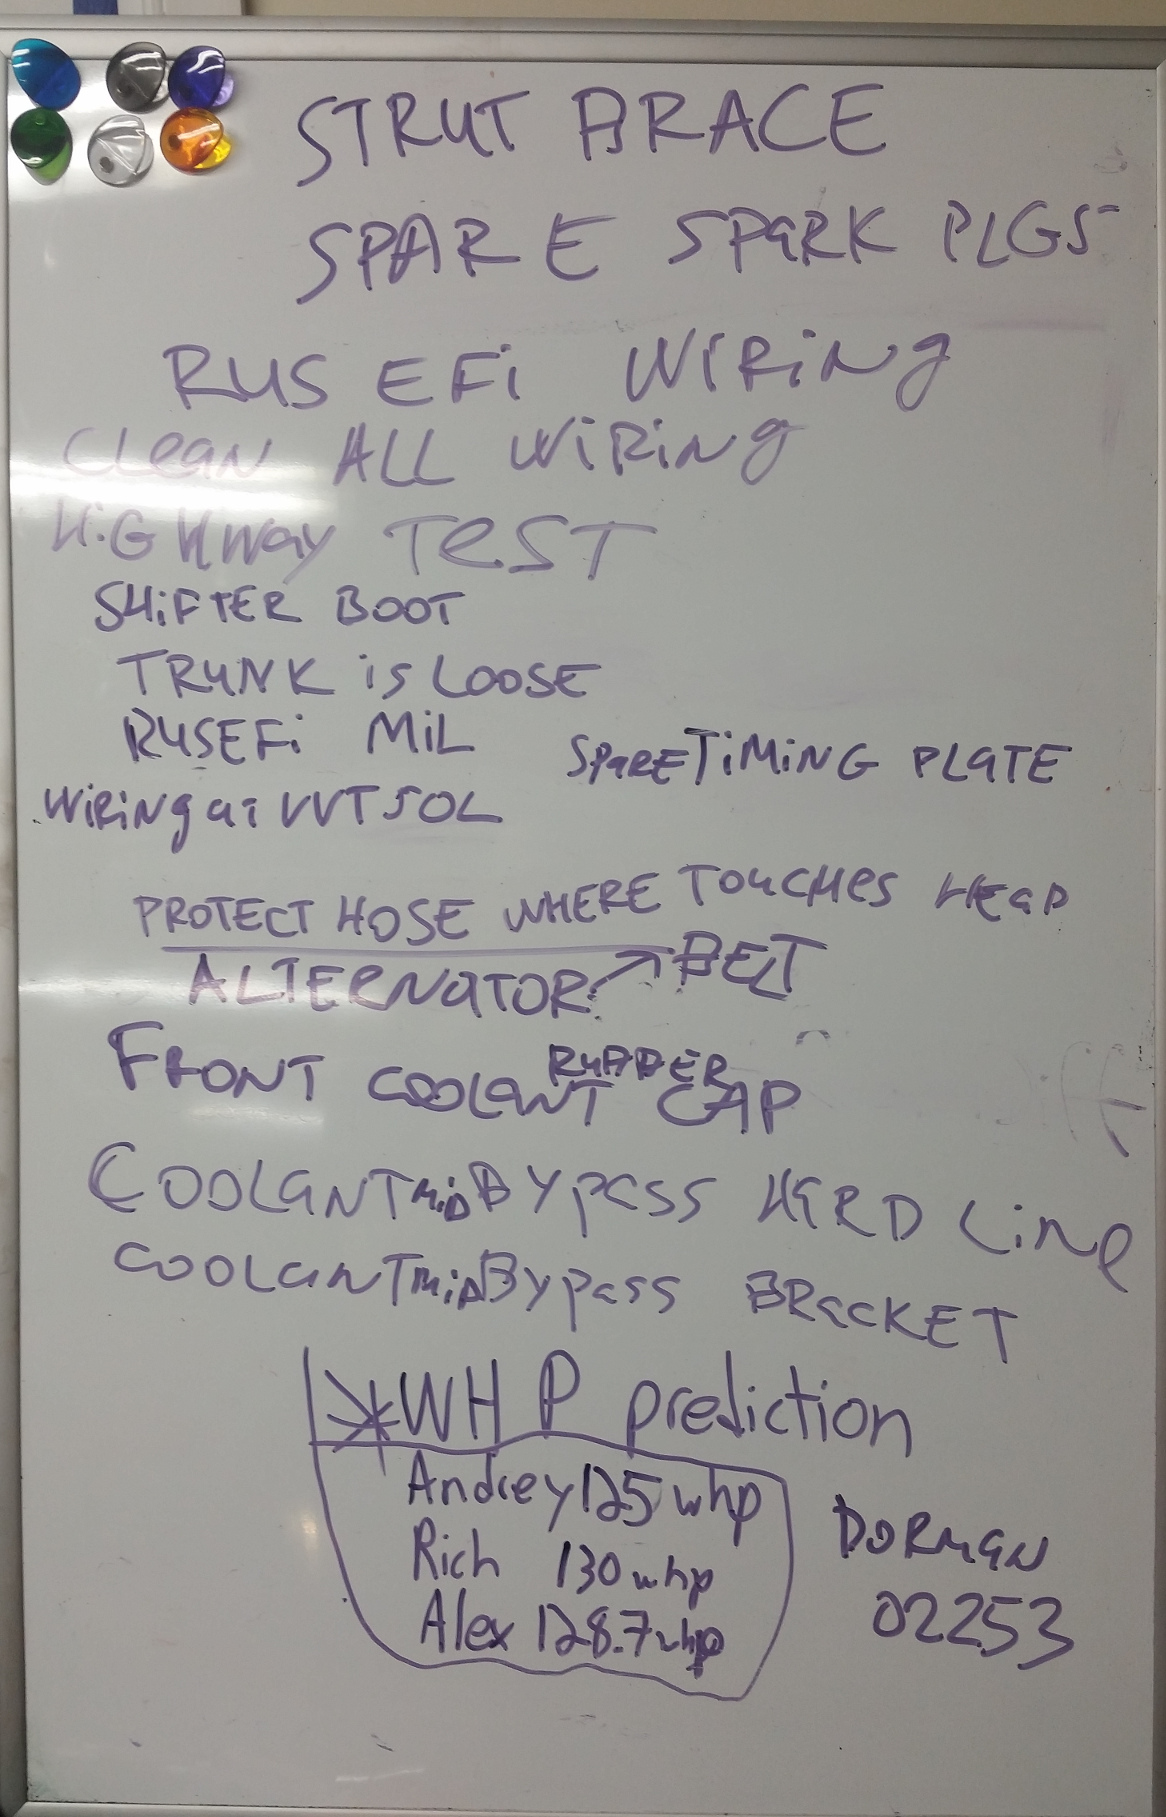 STRUT BRACE
SPARE SPARK PLGS
RUS EFi WIRiNg
CLEAN ALL WiRiNg
HiGHWay TEST
SHiFTER BOOT
TRUNK iS LOOSE
RUSEFi MiL
SPARE TiMiNG PLATE
WiRiNg aT VVT SOL
PROTECT HOSE WHERE TOUCHES HEAD
ALTERNATOR → BELT
FRONT COOLANT RUBBER CAP
COOLANT MiD BYPASS HARD LiNe
COOLANT MiD BYPASS BRACKET
WHP prediction
Andrey 125 whp
Rich 130 whp
Alex 128.7 whp
DORMAN
02253